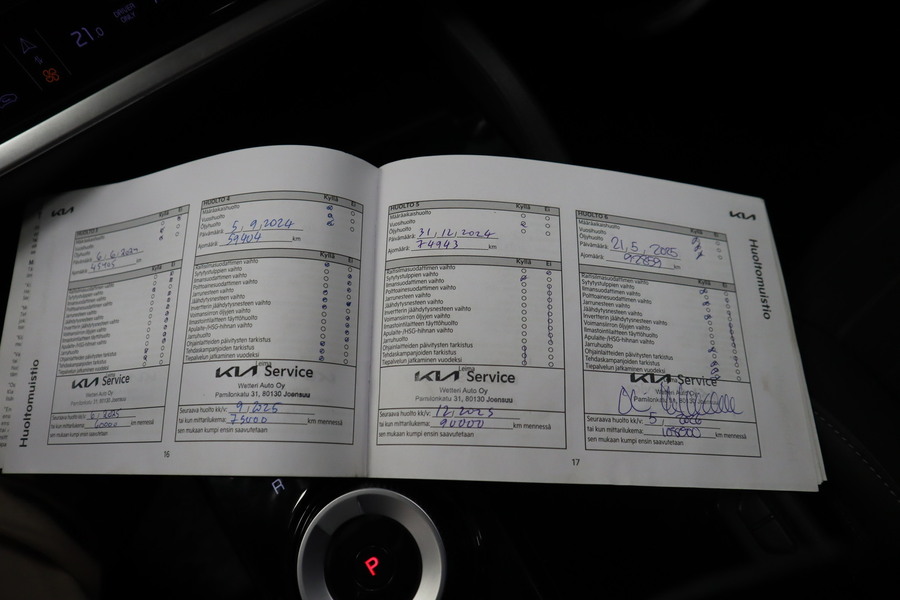 21.0
DRIVER
ONLY
KIA
HUOLTO 3
Kyllä Ei
Määräaikaishuolto
Vuosihuolto
Öljyhuolto
Päivämäärä:
Ajomäärä: km
Kyllä Ei
Raitisilmasuodattimen vaihto
Sytytystulppien vaihto
Ilmansuodattimen vaihto
Polttoainesuodattimen vaihto
Jarrunesteen vaihto
Jäähdytysnesteen vaihto
Invertterin jäähdytysnesteen vaihto
Voimansiirron öljyjen vaihto
Ilmastointilaitteen täyttöhuolto
Apulaite-/HSG-hihnan vaihto
Jarruhuolto
Ohjainlaitteiden päivitysten tarkistus
Tehdaskampanjoiden tarkistus
Tiepalvelun jatkaminen vuodeksi
KIA Service
Wetteri Auto Oy
Pamilonkatu 31, 80130 Joensuu
Seuraava huolto kk/v: 6, 2025
tai kun mittarilukema: 60000 km mennessä
sen mukaan kumpi ensin saavutetaan
HUOLTO 4
Kyllä Ei
Määräaikaishuolto
Vuosihuolto
Öljyhuolto
Päivämäärä: 5, 9, 2024
Ajomäärä: 59404 km
Kyllä Ei
Raitisilmasuodattimen vaihto
Sytytystulppien vaihto
Ilmansuodattimen vaihto
Polttoainesuodattimen vaihto
Jarrunesteen vaihto
Jäähdytysnesteen vaihto
Invertterin jäähdytysnesteen vaihto
Voimansiirron öljyjen vaihto
Ilmastointilaitteen täyttöhuolto
Apulaite-/HSG-hihnan vaihto
Jarruhuolto
Ohjainlaitteiden päivitysten tarkistus
Tehdaskampanjoiden tarkistus
Tiepalvelun jatkaminen vuodeksi
Leima
KIA Service
Wetteri Auto Oy
Pamilonkatu 31, 80130 Joensuu
Seuraava huolto kk/v: 9, 2025
tai kun mittarilukema: 75000 km mennessä
sen mukaan kumpi ensin saavutetaan
16
Huoltomuistio
HUOLTO 5
Kyllä Ei
Määräaikaishuolto
Vuosihuolto
Öljyhuolto
Päivämäärä: 31, 12, 2024
Ajomäärä: 74943 km
Kyllä Ei
Raitisilmasuodattimen vaihto
Sytytystulppien vaihto
Ilmansuodattimen vaihto
Polttoainesuodattimen vaihto
Jarrunesteen vaihto
Jäähdytysnesteen vaihto
Invertterin jäähdytysnesteen vaihto
Voimansiirron öljyjen vaihto
Ilmastointilaitteen täyttöhuolto
Apulaite-/HSG-hihnan vaihto
Jarruhuolto
Ohjainlaitteiden päivitysten tarkistus
Tehdaskampanjoiden tarkistus
Tiepalvelun jatkaminen vuodeksi
Leima
KIA Service
Wetteri Auto Oy
Pamilonkatu 31, 80130 Joensuu
Seuraava huolto kk/v: 12, 2025
tai kun mittarilukema: 90000 km mennessä
sen mukaan kumpi ensin saavutetaan
17
KIA
HUOLTO 6
Kyllä Ei
Määräaikaishuolto
Vuosihuolto
Öljyhuolto
Päivämäärä: 21, 5, 2025
Ajomäärä: km
Kyllä Ei
Raitisilmasuodattimen vaihto
Sytytystulppien vaihto
Ilmansuodattimen vaihto
Polttoainesuodattimen vaihto
Jarrunesteen vaihto
Jäähdytysnesteen vaihto
Invertterin jäähdytysnesteen vaihto
Voimansiirron öljyjen vaihto
Ilmastointilaitteen täyttöhuolto
Apulaite-/HSG-hihnan vaihto
Jarruhuolto
Ohjainlaitteiden päivitysten tarkistus
Tehdaskampanjoiden tarkistus
Tiepalvelun jatkaminen vuodeksi
KIA Service
Seuraava huolto kk/v: 5, 2026
tai kun mittarilukema: km mennessä
sen mukaan kumpi ensin saavutetaan
Huoltomuistio
R
P